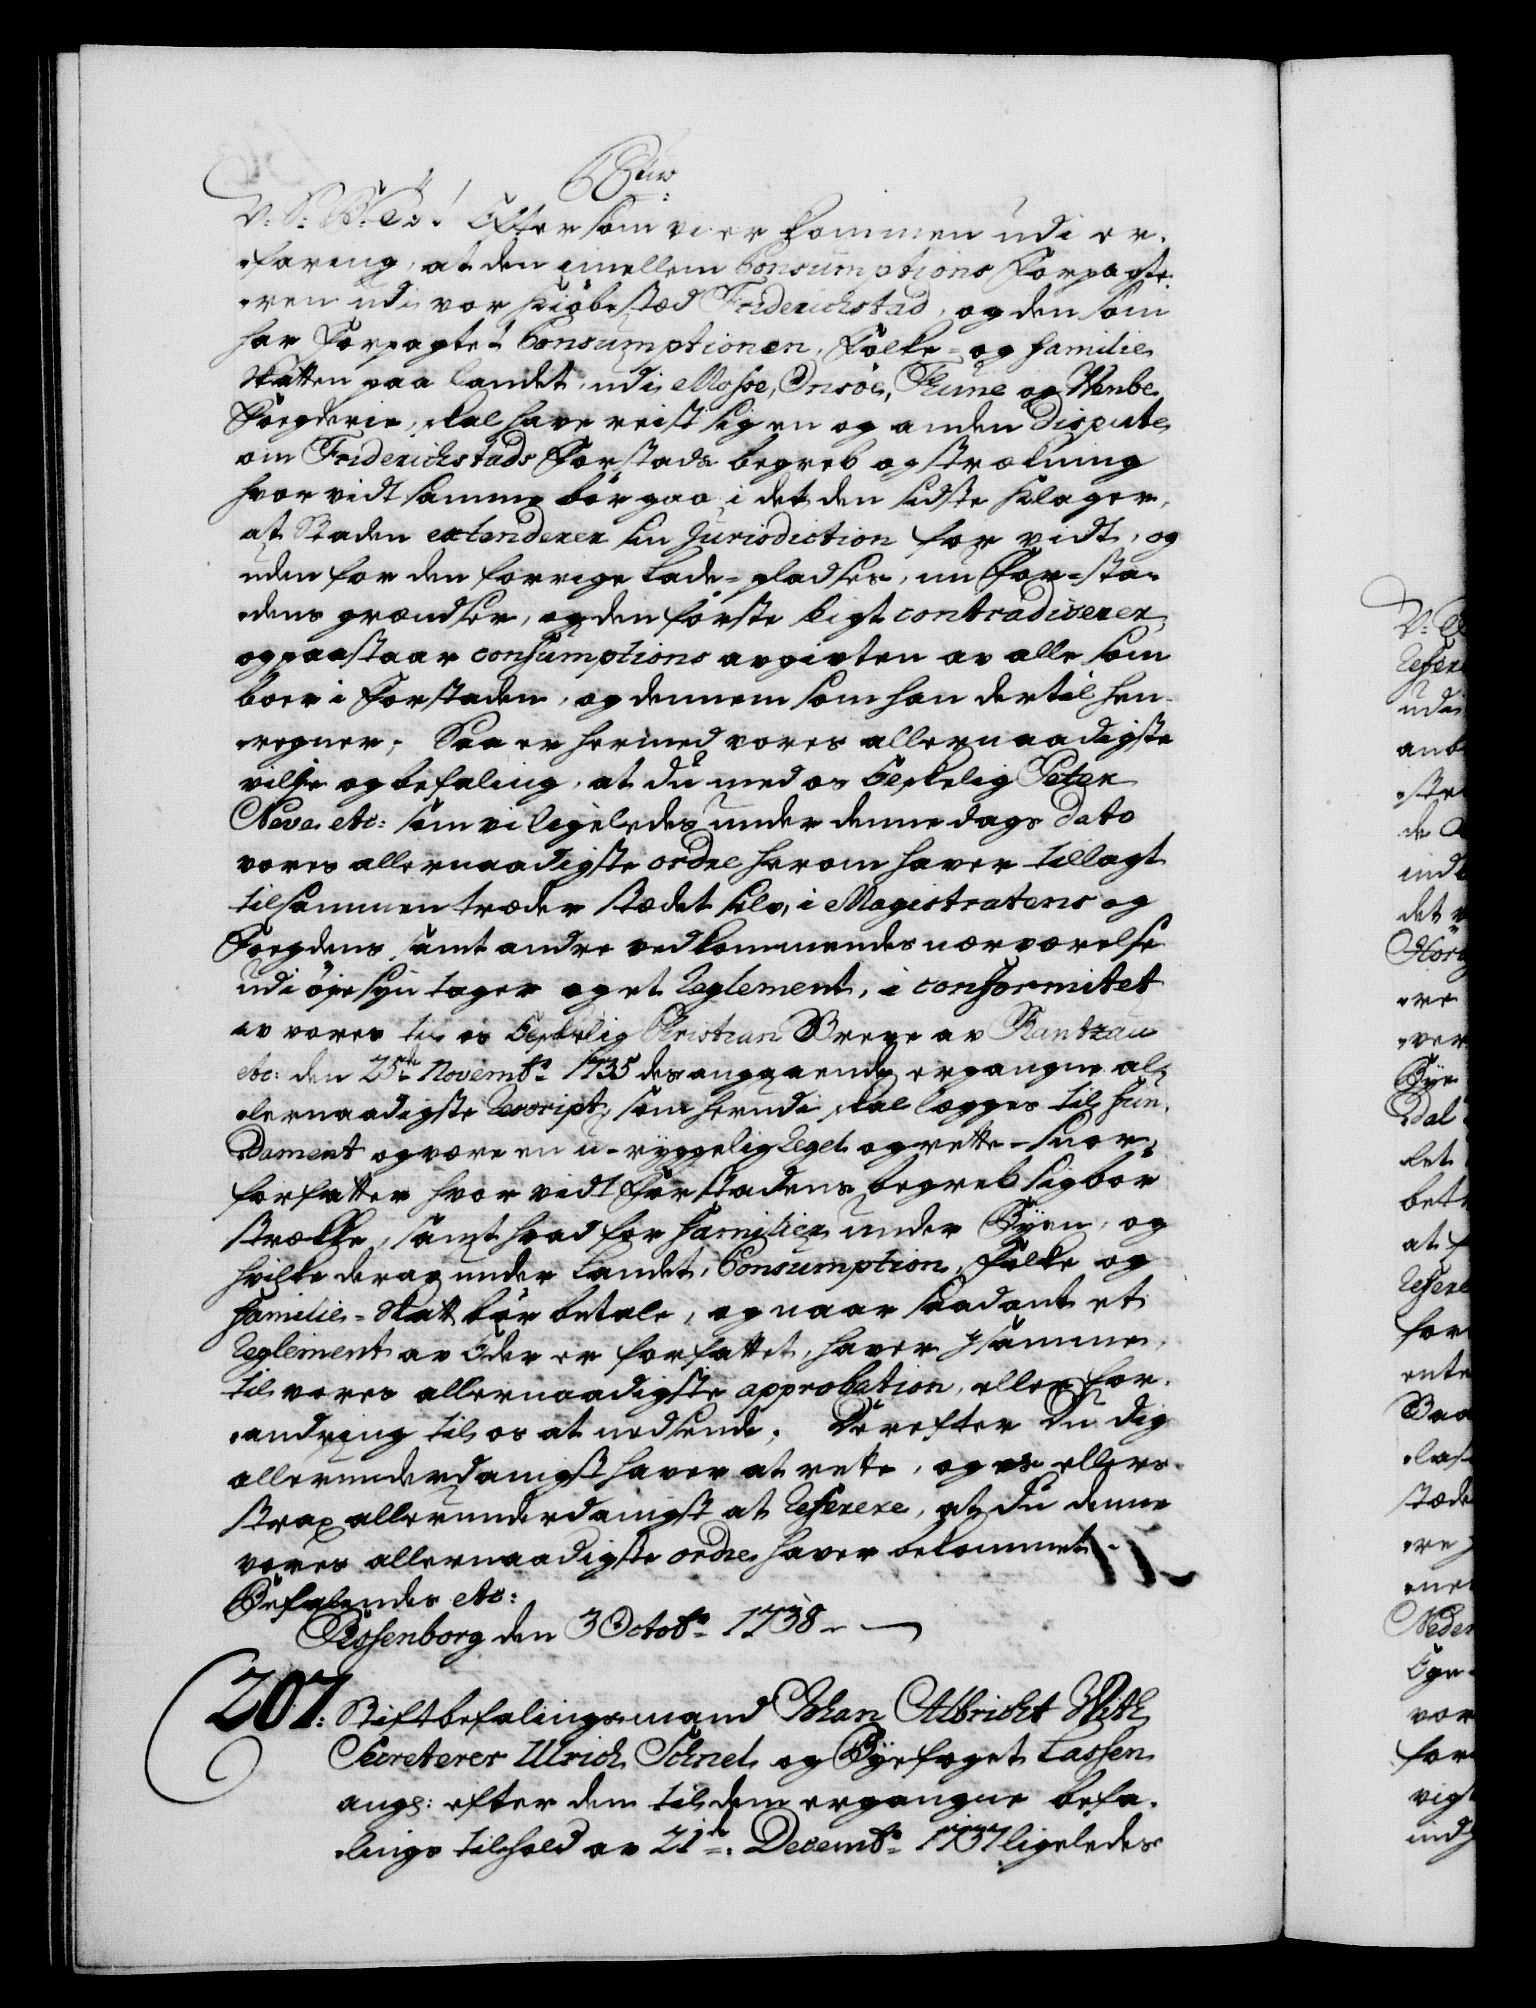 V: S: G: T:! Efter som vi er kommen udi er-
faring, at den imellem Consumptions Forpagte-
ren udi vor kiöbestæd Friderichstad, og den som
har Forpagtet Consumptionen, Folke- og familie
skatten paa Landet udi Mosse, Onsöe, Thune og Wenbe
Fogderie, skal have reist sig en og anden dispute
om Friderichstads Forstads begreb og strækning
hvor vidt samme bör gaa, i det den sidste klager,
at Staden extenderer sin Jurisdiction for vidt, og
uden for den forrige Lade-pladses, nu For-sta-
dens grændser, og den förste sligt contradicerer,
og paastaar consumptions avgivten av alle som
boer i Forstaden, og dennem som han dertil hen-
regner; Saa er hermed vores allernaadigste
villie og befaling, at du med os Elskelig Peter
Neve etc: som vi ligeledes under denne dags dato
vores allernaadigste ordre herom haver tillagt
tilsammentræder stædet selv, i Magistratens og
Fogdens samt andre vedkommendes nærværelse
udi öyesyn tager og et Reglement, i conformitet
av vores til os Elskelig Christian Greve av Rantzau
etc: den 25de Novembr 1735 desangaaende ergangne al-
lernaadigste Rescript, som herudi skal lægges til fun-
dament og være en u-ryggelig Regel og rette-snor,
forfatter hvor vidt Forstadens begreb sig bör
strække, samt hvad for familier under Byen, og
hvilke derav under Landet, Consumption, Folke og
familie-Skatt bör betale, og naar saadant et
Reglement av Eder er forfattet, haver I samme
til vores allernaadigste approbation, eller for-
andring til os at nedsende. Derefter du dig
allerunderdanigst haver at rette, og os ellers
strax allerunderdanigst at Referere, at du denne
vores allernaadigste ordre haver bekommet.
Befalendes etc:
Rosenborg den 3 Octobr 1738
207: Stiftbefalingsmand Johan Albricht With
Secreterer Ulrich Schnel og Byefoget Lassen
ang: efter den til dem ergangne befa-
lings tilhold av 21de Decembr 1737 ligeledes